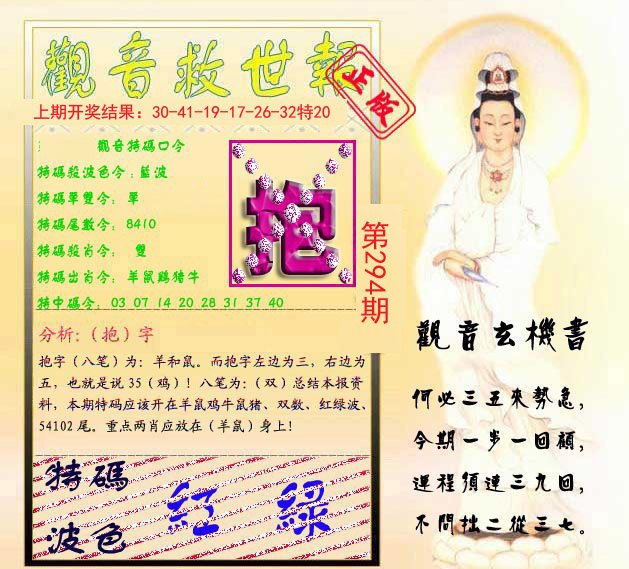 觀音救世報
正版
上期开奖结果：30-41-19-17-26-32特20
觀音特碼口令
特碼殺波色令：藍波
特碼單雙令： 單
特碼尾數令： 8410
特碼殺肖令： 雙
特碼出肖令： 羊鼠鷄猪牛
特中碼令： 03 07 14 20 28 31 37 40
抱
第294期
分析：（抱）字
抱字（八笔）为：羊和鼠。而抱字左边为三，右边为
五，也就是说 35（鸡）！八笔为：（双）总结本报资
料，本期特码应该开在羊鼠鸡牛鼠猪、双数、红绿波、
54102 尾。重点两肖应放在（羊鼠）身上！
特碼
波色
紅 綠
觀音玄機書
何必三五來勢急，
今期一步一回顧，
運程須連三九回，
不問拙二從三七。